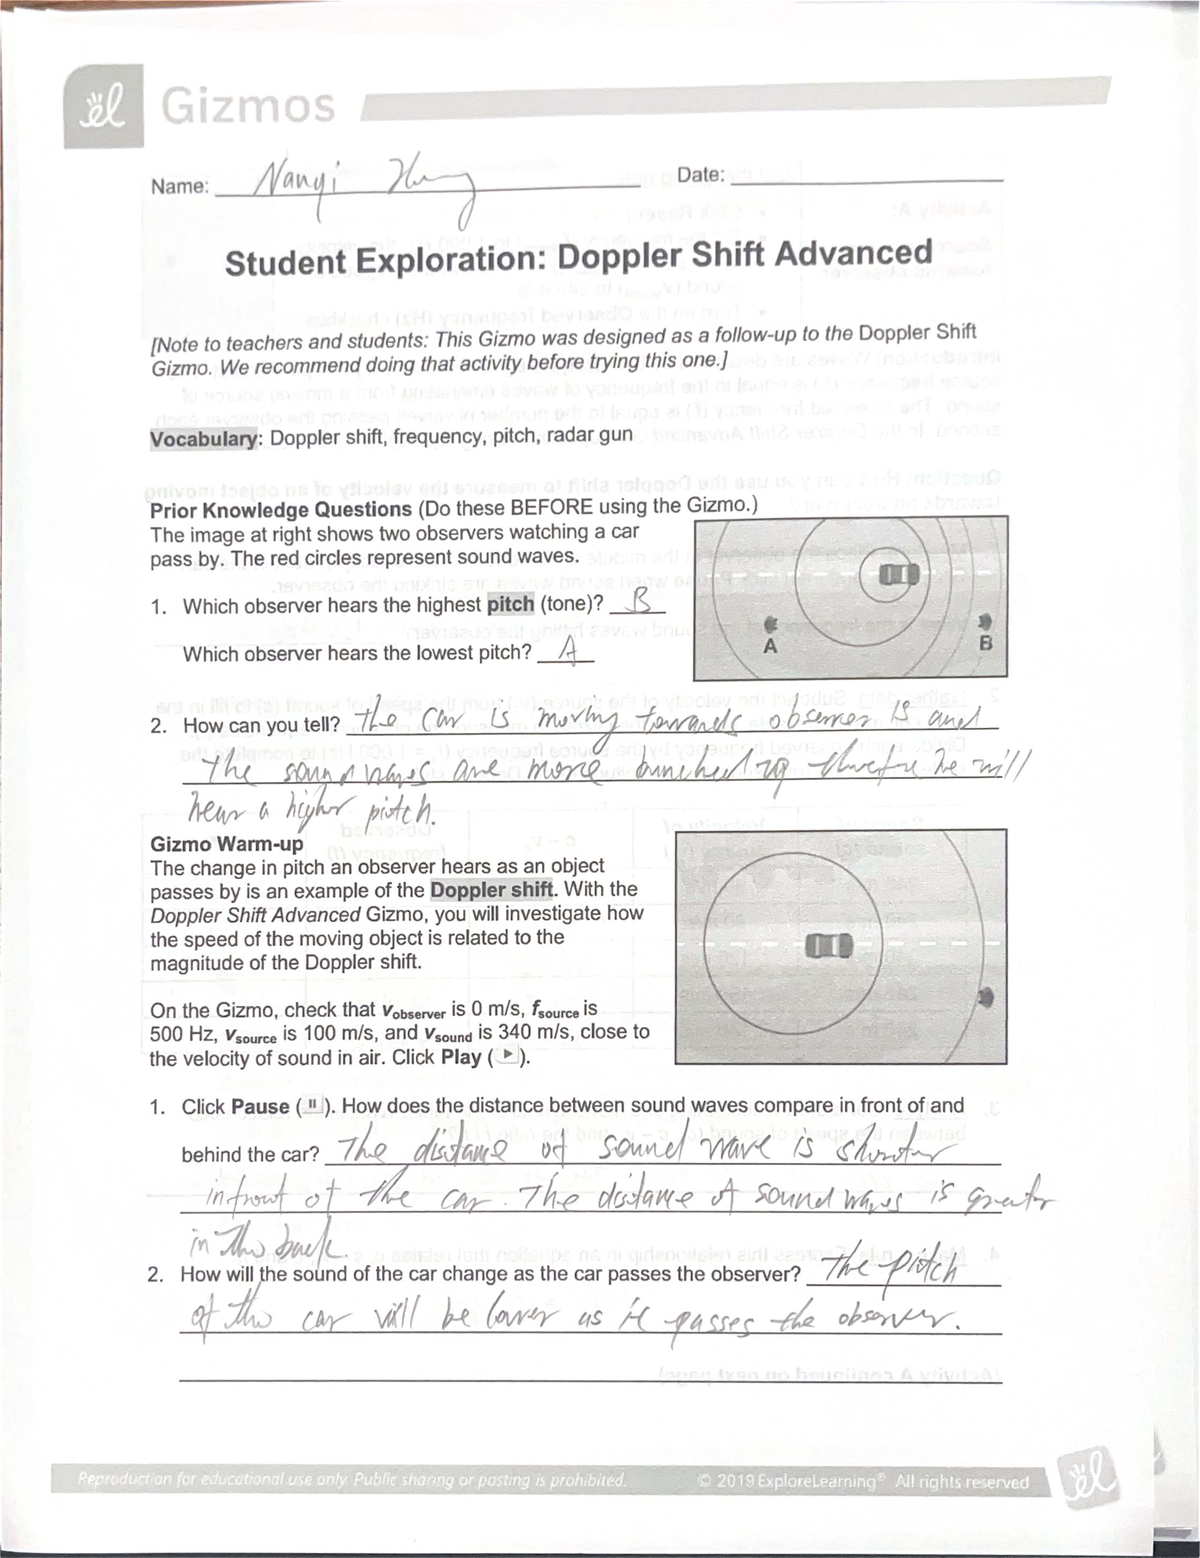 el Gizmos
Name: Nanyi Date:
Student Exploration: Doppler Shift Advanced
[Note to teachers and students: This Gizmo was designed as a follow-up to the Doppler Shift
Gizmo. We recommend doing that activity before trying this one.]
Vocabulary: Doppler shift, frequency, pitch, radar gun
Prior Knowledge Questions (Do these BEFORE using the Gizmo.)
The image at right shows two observers watching a car
pass by. The red circles represent sound waves.
1. Which observer hears the highest pitch (tone)? B
Which observer hears the lowest pitch? A
A B
2. How can you tell? The car is moving towards observer B and
The sound waves are more bunched up therefore he will
hear a higher pictch.
Gizmo Warm-up
The change in pitch an observer hears as an object
passes by is an example of the Doppler shift. With the
Doppler Shift Advanced Gizmo, you will investigate how
the speed of the moving object is related to the
magnitude of the Doppler shift.
On the Gizmo, check that vobserver is 0 m/s, fsource is
500 Hz, vsource is 100 m/s, and vsound is 340 m/s, close to
the velocity of sound in air. Click Play ( ).
1. Click Pause ( ). How does the distance between sound waves compare in front of and
behind the car? The distance of sound wave is shorter
in front of the car. The distance of sound waves is greater
in the back.
2. How will the sound of the car change as the car passes the observer? The pictch
of the car will be lower as it passes the observer.
Reproduction for educational use only. Public sharing or posting is prohibited. © 2019 ExploreLearning® All rights reserved
el